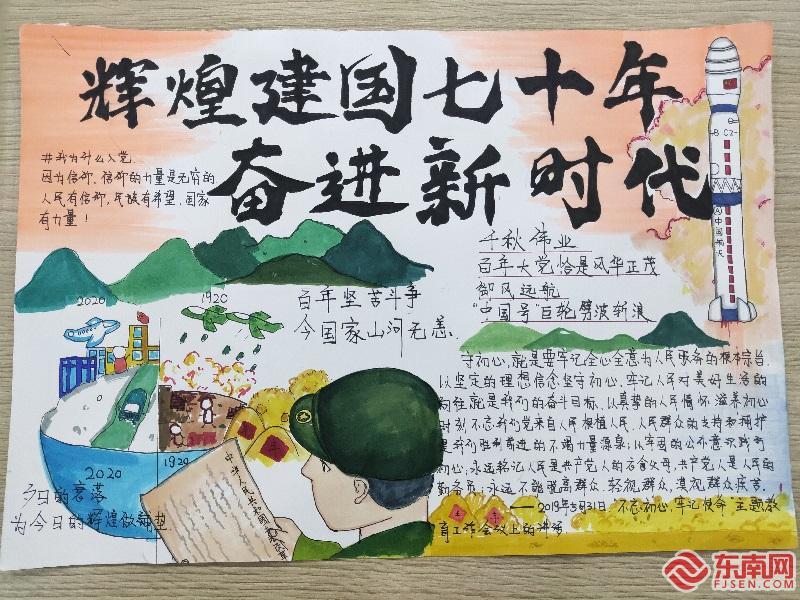 辉煌建国七十年
奋进新时代
#我为什么入党
因为信仰,信仰的力量是无穷的
人民有信仰,民族有希望,国家
有力量!
千秋伟业
百年大党恰是风华正茂
御风远航
“中国号”巨轮劈波斩浪
中国航天
2020
1920
百年坚苦斗争
今国家山河无恙
守初心,就是要牢记全心全意为人民服务的根本宗旨
以坚定的理想信念坚守初心,牢记人民对美好生活的
向往就是我们的奋斗目标,以真挚的人民情怀滋养初心
时刻不忘我们党来自人民根植人民,人民群众的支持和拥护
是我们胜利前进的不竭力量源泉;以牢固的公仆意识践行
初心,永远铭记人民是共产党人的衣食父母,共产党人是人民的
勤务员;永远不能脱离群众,轻视群众,漠视群众疾苦.
——2019年5月31日,不忘初心、牢记使命主题教
育工作会议上的讲话
2020
1920
夕日的衰落
为今日的辉煌做铺垫
中华人民共和国
东南网
FJSEN.COM